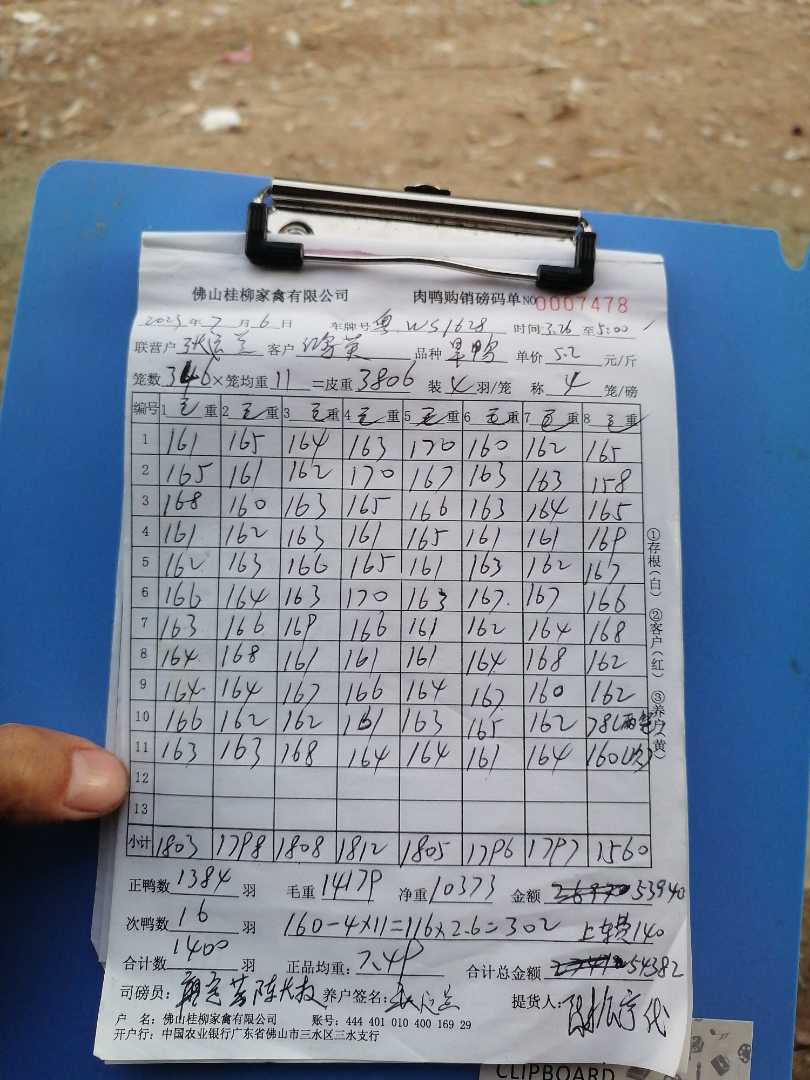 佛山桂柳家禽有限公司 肉鸭购销磅码单 NO 0007478
2023年7月6日 车牌号 粤.WS1628 时间 3.26 至 5:00
联营户 客户 品种 旱鸭 单价 5.2 元/斤
笼数 346 ×笼均重 11 =皮重 3806 装 4 羽/笼 称 4 笼/磅
编号 1 毛重 2 毛重 3 毛重 4 毛重 5 毛重 6 毛重 7 毛重 8 毛重
1 161 165 164 163 170 160 162 165
2 165 161 162 170 167 163 163 158
3 168 160 163 165 166 163 164 165
4 161 162 163 161 165 161 161 169
5 162 163 166 165 161 163 162 167
6 166 164 163 170 163 167. 167 166
7 163 166 169 166 161 162 164 168
8 164 168 161 161 161 164 168 162
9 164 164 167 166 164 167 160 162
10 166 162 162 161 163 165 162 78(两笼)
11 163 163 168 164 164 161 164 160(次)
12
13
小计 1803 1798 1808 1812 1805 1796 1797 1560
①存根(白) ②客户(红) ③养户(黄)
正鸭数 1384 羽 毛重 14179 净重 10373 金额 53940
次鸭数 16 羽 160-4×11=116×2.6=302 上车费140
合计数 1400 羽 正品均重: 7.49 合计总金额 54382
司磅员: 养户签名: 提货人:
户 名: 佛山桂柳家禽有限公司 账号: 444 401 010 400 169 29
开户行: 中国农业银行广东省佛山市三水区三水支行
CLIPBOARD